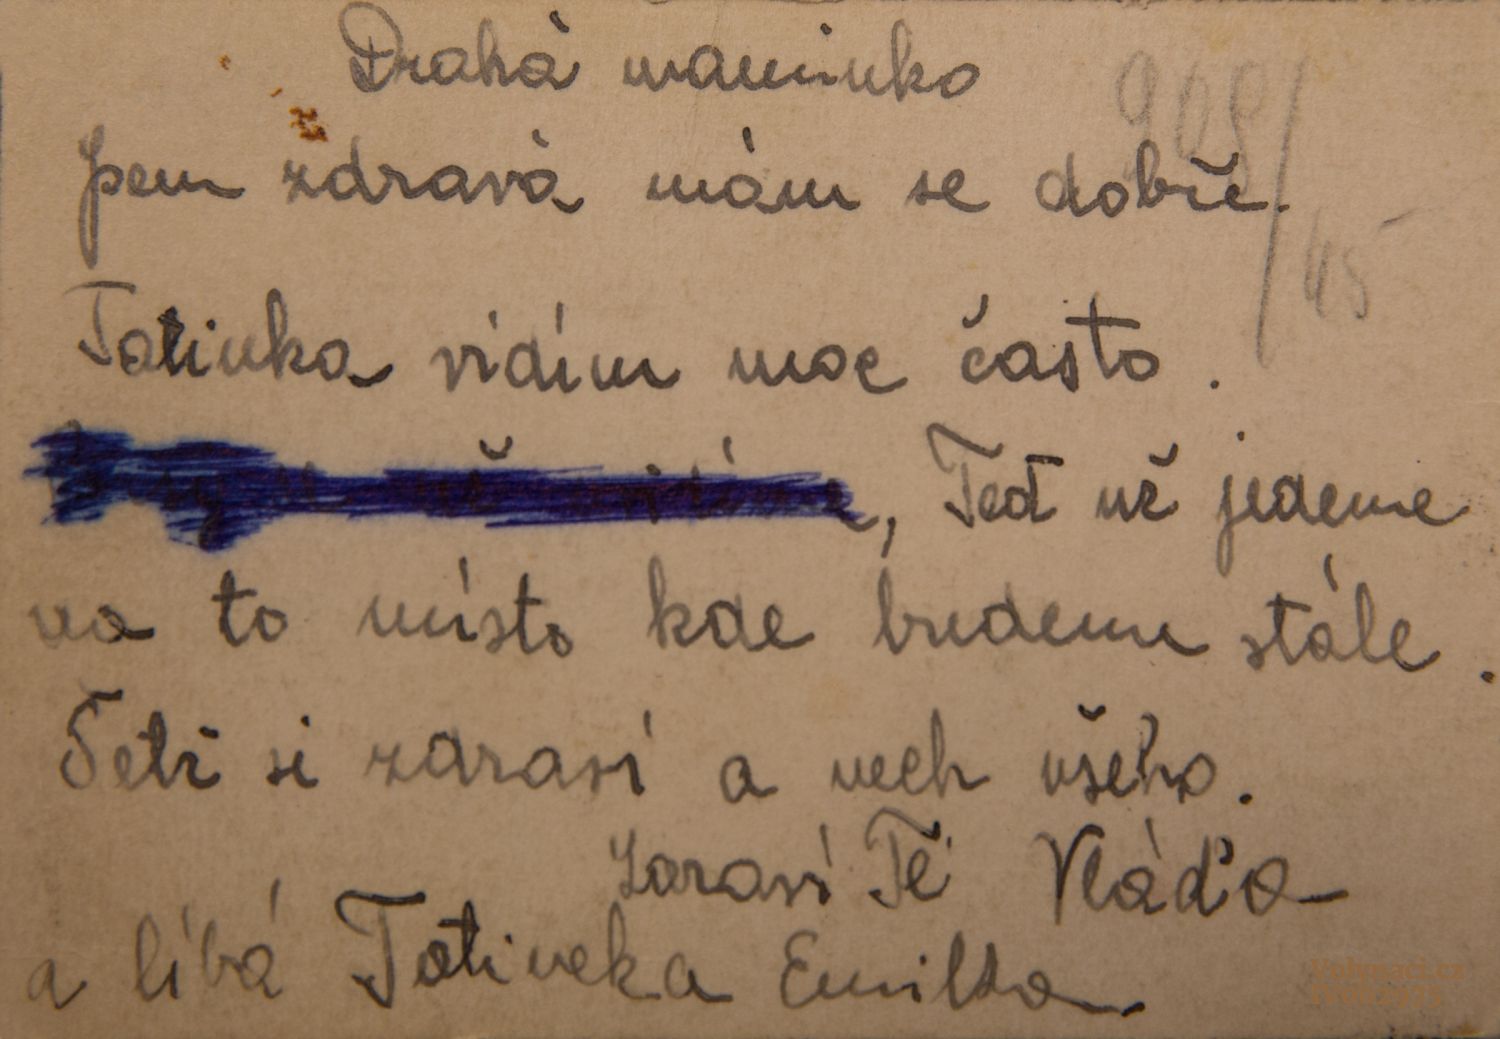 Drahá maminko
908/45
jsem zdravá mám se dobře.
Tatinka vidím moc často.
, Teď už jedeme
na to místo kde budeme stále.
Šetř si zdraví a nech všeho.
Zdraví Tě Vláďa
a líbá Tatineka Emilka
Volynaci.cz